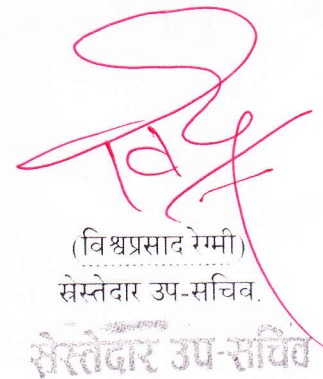 (विश्वप्रसाद रेग्मी)
स्रेस्तेदार उप-सचिव.
स्रेस्तेदार उप-सचिव